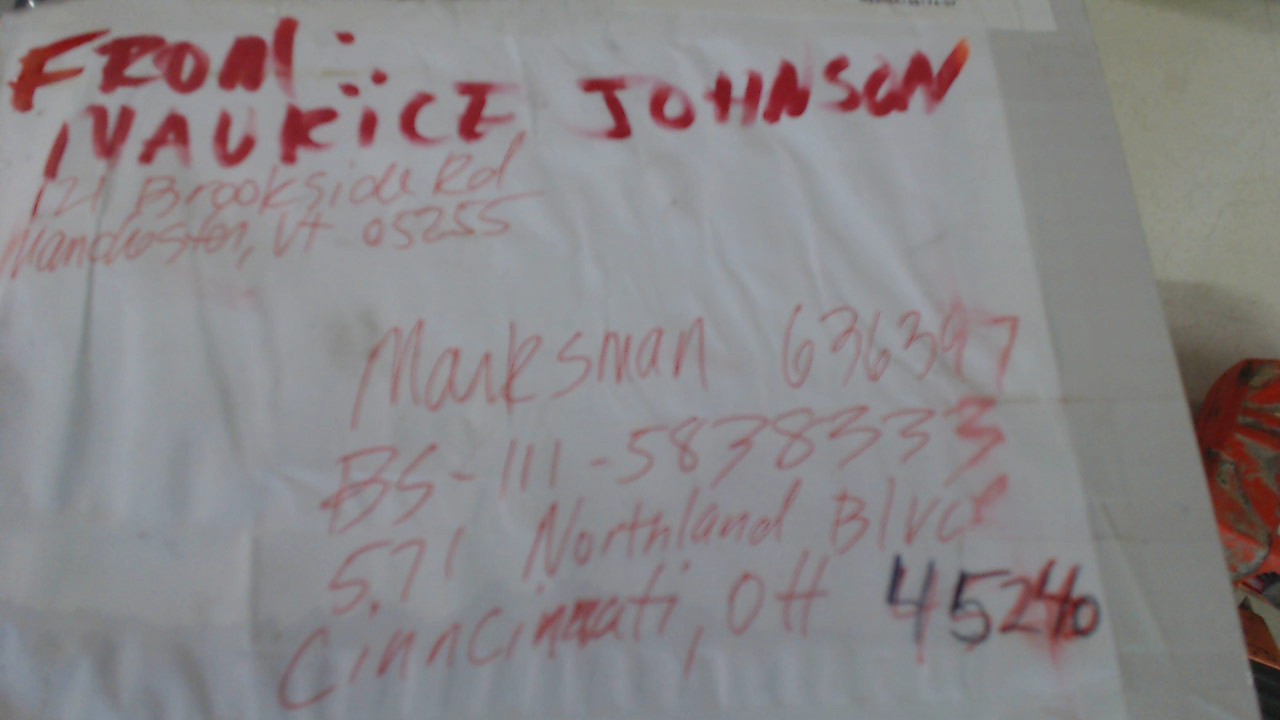 FROM:
MAURICE JOHNSON
121 Brookside Rd
Manchester, Vt 05255
Marksman 636397
BS-111-5838333
571 Northland Blvd
Cinncinnati, OH 45246